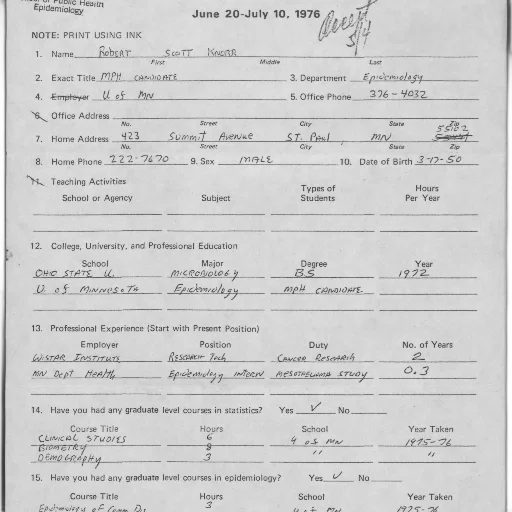 of Public Health
Epidemiology
June 20-July 10, 1976
Accept
5/4
NOTE: PRINT USING INK
1. Name ROBERT SCOTT KNORR
First Middle Last
2. Exact Title MPH CANDIDATE 3. Department Epidemiology
4. Employer U of MN 5. Office Phone 376-4032
6. Office Address
No. Street City State Zip
55102
7. Home Address 423 Summit Avenue ST. PAUL MN
No. Street City State Zip
8. Home Phone 222-7670 9. Sex MALE 10. Date of Birth 3-17-50
11. Teaching Activities
School or Agency Subject Types of Students Hours Per Year
12. College, University, and Professional Education
School Major Degree Year
OHIO STATE U. MICROBIOLOGY BS 1972
U. of MINNESOTA Epidemiology MPH CANDIDATE
13. Professional Experience (Start with Present Position)
Employer Position Duty No. of Years
WISTAR INSTITUTE RESEARCH Tech CANCER RESEARCH 2
MN DEPT HEALTH Epidemiology INTERN MESOTHELIOMA STUDY 0.3
14. Have you had any graduate level courses in statistics? Yes ✓ No
Course Title Hours School Year Taken
CLINICAL STUDIES 6 U of MN 1975-76
BIOMETRY 8 " "
DEMOGRAPHY 3
15. Have you had any graduate level courses in epidemiology? Yes ✓ No
Course Title Hours School Year Taken
Epidemiology of Comm Dis 3 U of MN 1975-76